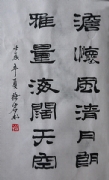 澹懷風清月朗
雅量海闊天空